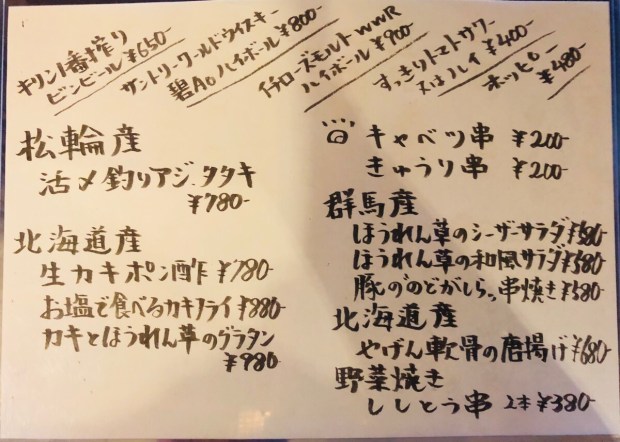 キリン一番搾り
ビンビール ¥650-
サントリーワールドウイスキー
碧Ao ハイボール ¥800-
イチローズモルト WWR
ハイボール ¥900-
すっきりトマトサワー
又はハイ ¥400-
ホッピー
¥480-
松輪産
活〆釣りアジ タタキ
¥780-
北海道産
生カキポン酢 ¥780-
お塩で食べるカキフライ ¥880-
カキとほうれん草のグラタン
¥980-
キャベツ串 ¥200-
きゅうり串 ¥200-
群馬産
ほうれん草のシーザーサラダ ¥580-
ほうれん草の和風サラダ ¥580-
豚の"のどがしら"串焼き ¥580-
北海道産
やげん軟骨の唐揚げ ¥680-
野菜焼き
ししとう串 2本 ¥380-